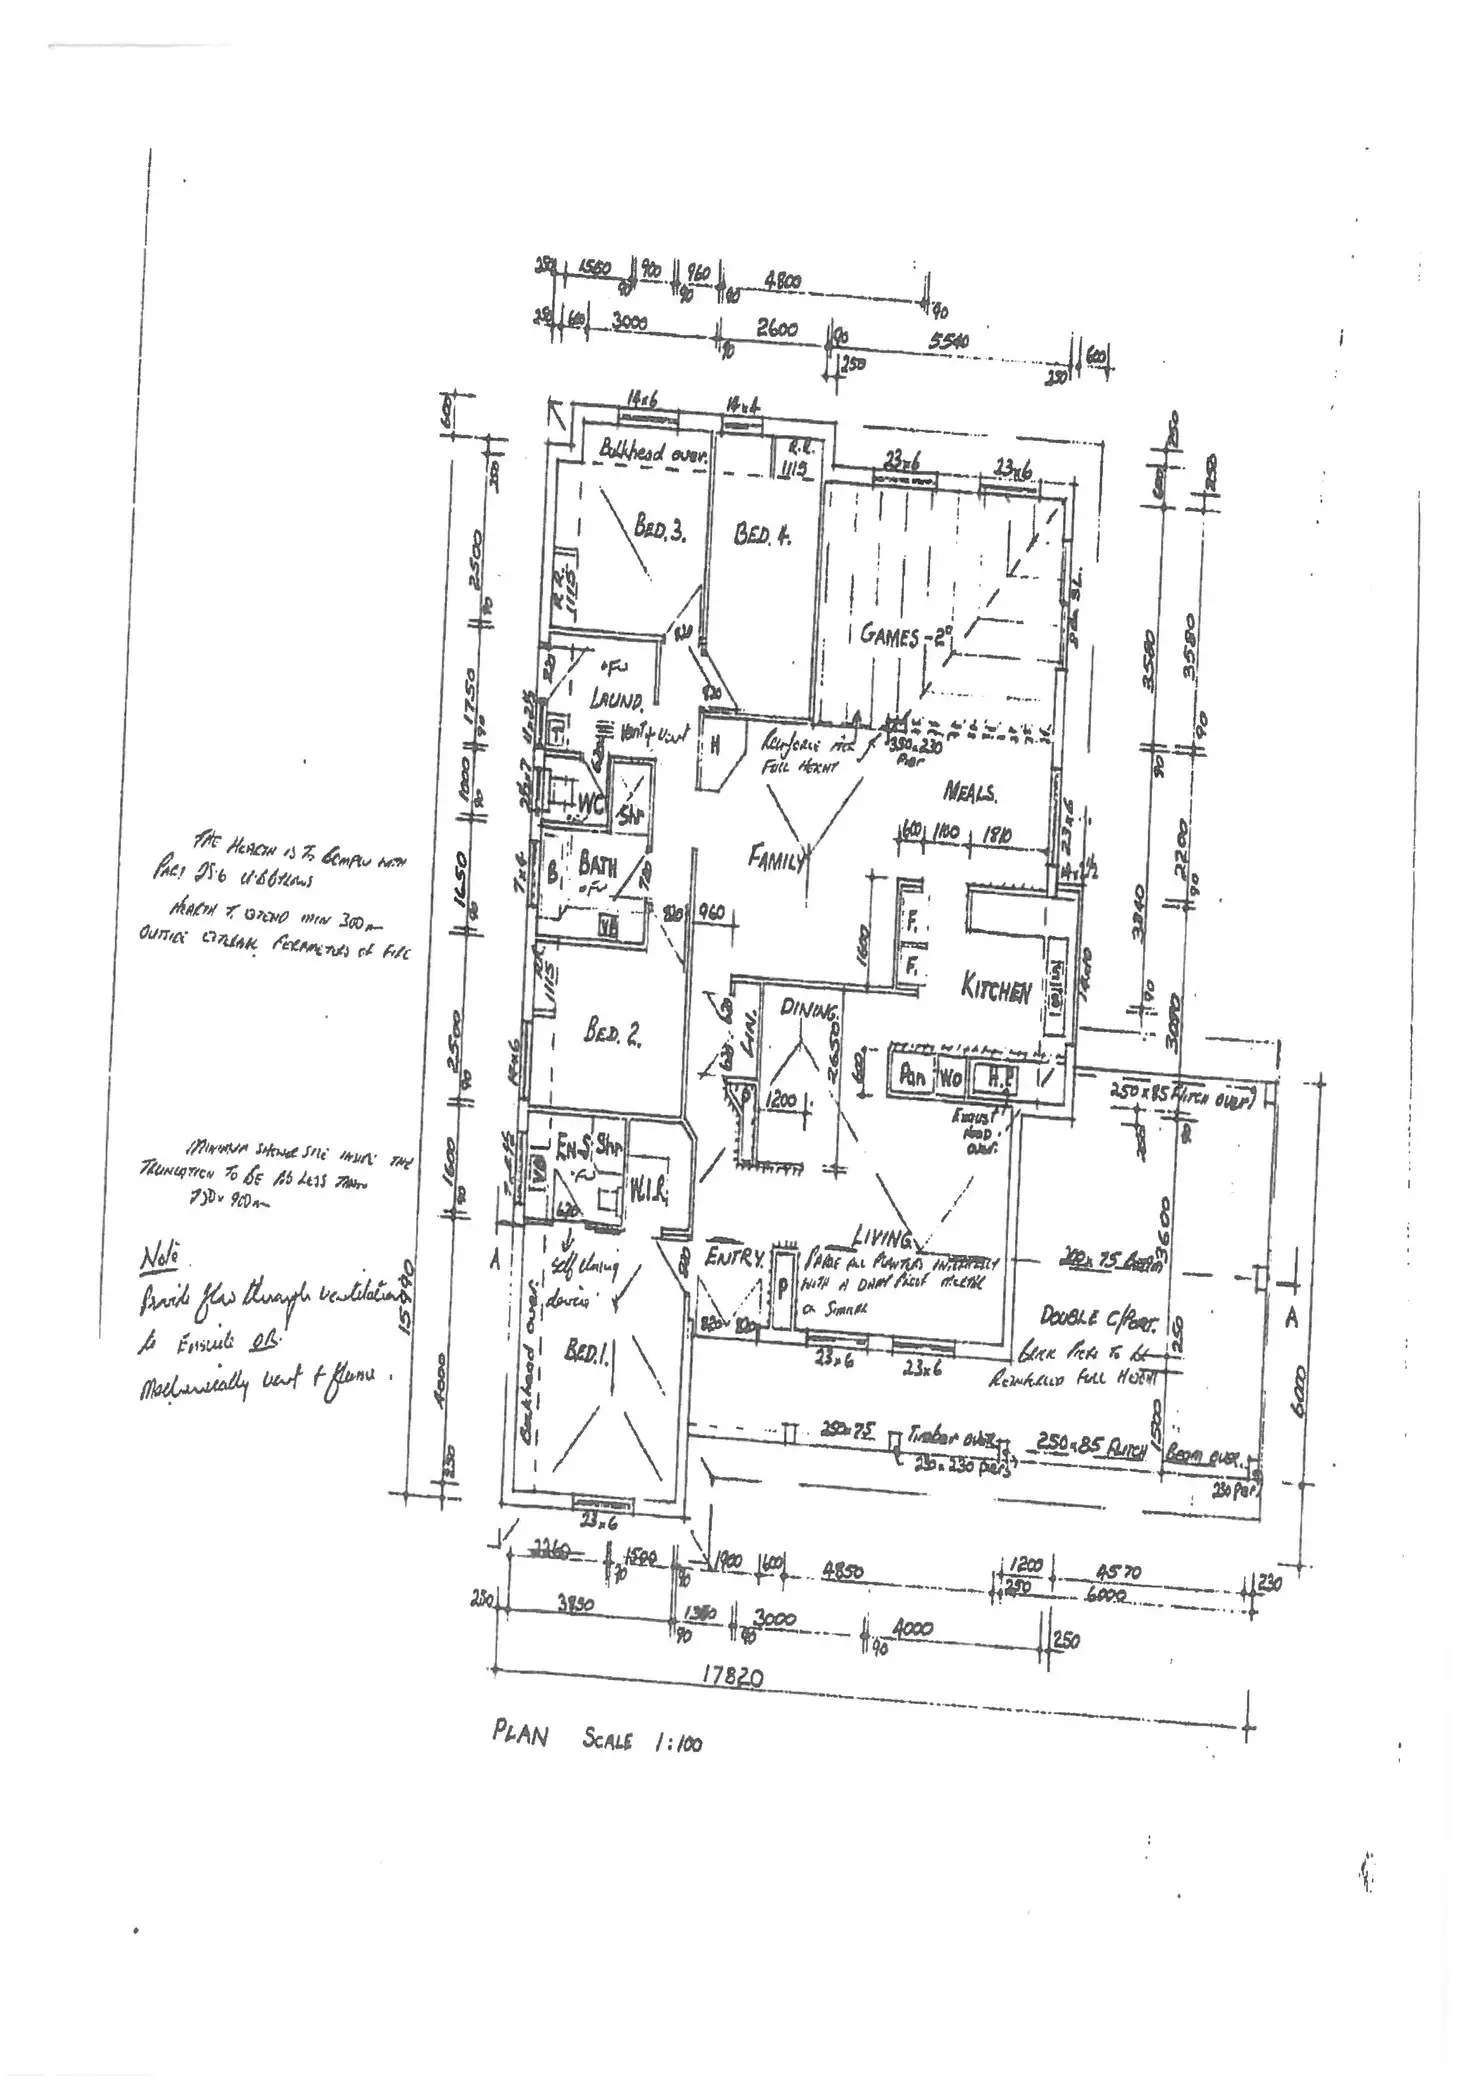 250 1550 900 960 4800
90 90 90 90
250 600 3000 2600 90 5540 600
90 250 250
14x6 14x4
Bulkhead over.
R.R.
1115
23x6 23x6
BED.3.
BED.4.
R.R.
1115
GAMES-2°
820
820
720
FW
LAUND.
Vent
620
H
REINFORCE PIER
FULL HEIGHT
350x230
Pier
MEALS.
600 1100 1810
23x6
WC
Shr
FAMILY
B.
BATH
FW
720
VB
820
960
7x4
F.
F.
KITCHEN
1600
R.R.
1115
BED.2.
14x6
LIN.
620
620
DINING.
2650
1200
600
Pan WO H.P
EXHAUST
HOOD
OVER.
250x85 FLITCH OVER
EN-S Shr
FW
VB
W.I.R.
620
A
Self closing
device
820
ENTRY.
820 820
P
LIVING
PARGE ALL PLANTERS INTERNALLY
WITH A DAMP PROOF MORTAR
OR SIMILAR
23x6 23x6
DOUBLE C/PORT.
BRICK PIERS TO BE
REINFORCED FULL HEIGHT
A
BED.1.
Bulkhead over.
23x6
250x75 Timber over
230x230 Piers
250x85 FLITCH BEAM OVER.
230 Pier
600
250
2500
90
1750
90
1000
90
1650
90
2500
90
1600
90
4000
250
15990
250
600
250
3580
3580
90
90
2200
90
3840
90
3080
90
250
3600
250
1500
6000
THE HEARTH IS TO COMPLY WITH
HEARTH TO EXTEND MIN 300m
OUTSIDE EXTERNAL PERAMETERS OF FIRE
MINIMUM SHOWER SIZE INSIDE THE
TRUNCATION TO BE NO LESS THAN
750x900m
Note
Provide flow through ventilation
to Ensuite OR
Mechanically vent + flume.
2260 1500 1900 600 4850 1200 4570 230
90 90 250 6000
250 3850 1350 3000 4000 250
90 90 90
17820
PLAN SCALE 1:100